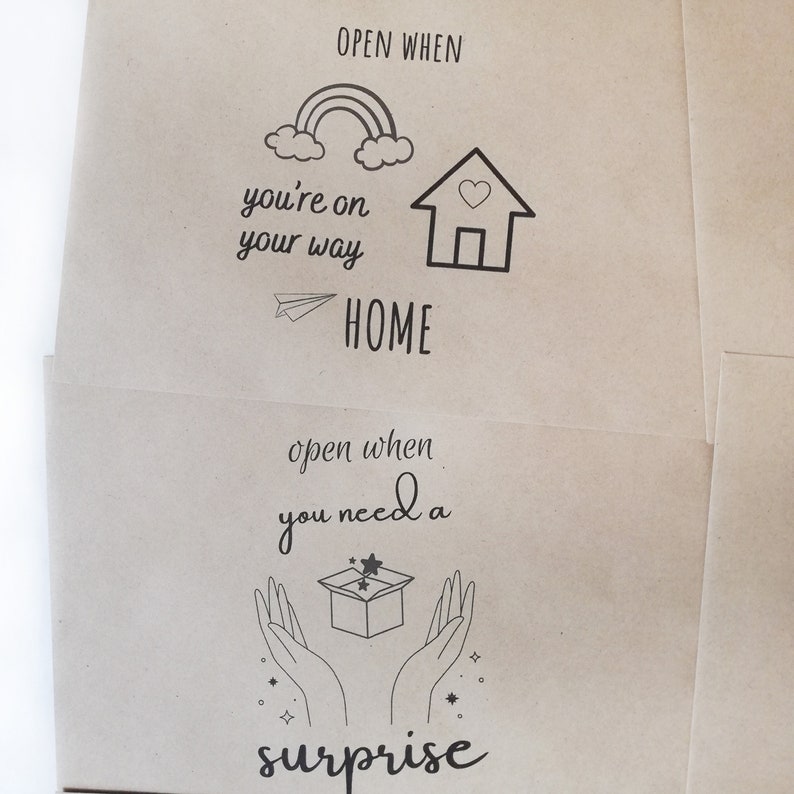 OPEN WHEN
you're on
your way
HOME
open when
you need a
surprise